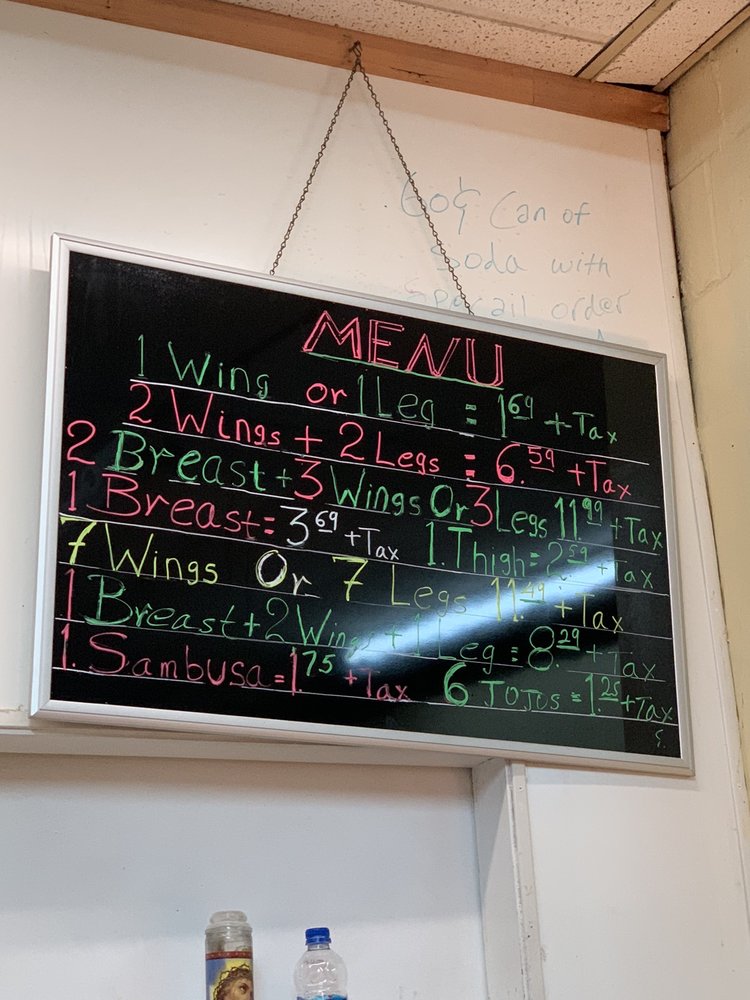 60¢ Can of
Soda with
Specail order
MENU
1 Wing or 1 Leg = 1.69 + Tax
2 Wings + 2 Legs = 6.59 + Tax
2 Breast + 3 Wings Or 3 Legs 11.99 + Tax
1 Breast = 3.69 + Tax 1. Thigh = 2.59 + Tax
7 Wings Or 7 Legs 11.49 + Tax
1 Breast + 2 Wings + 1 Leg = 8.29 + Tax
1. Sambusa = 1.75 + Tax 6 JoJos = 1.25 + Tax